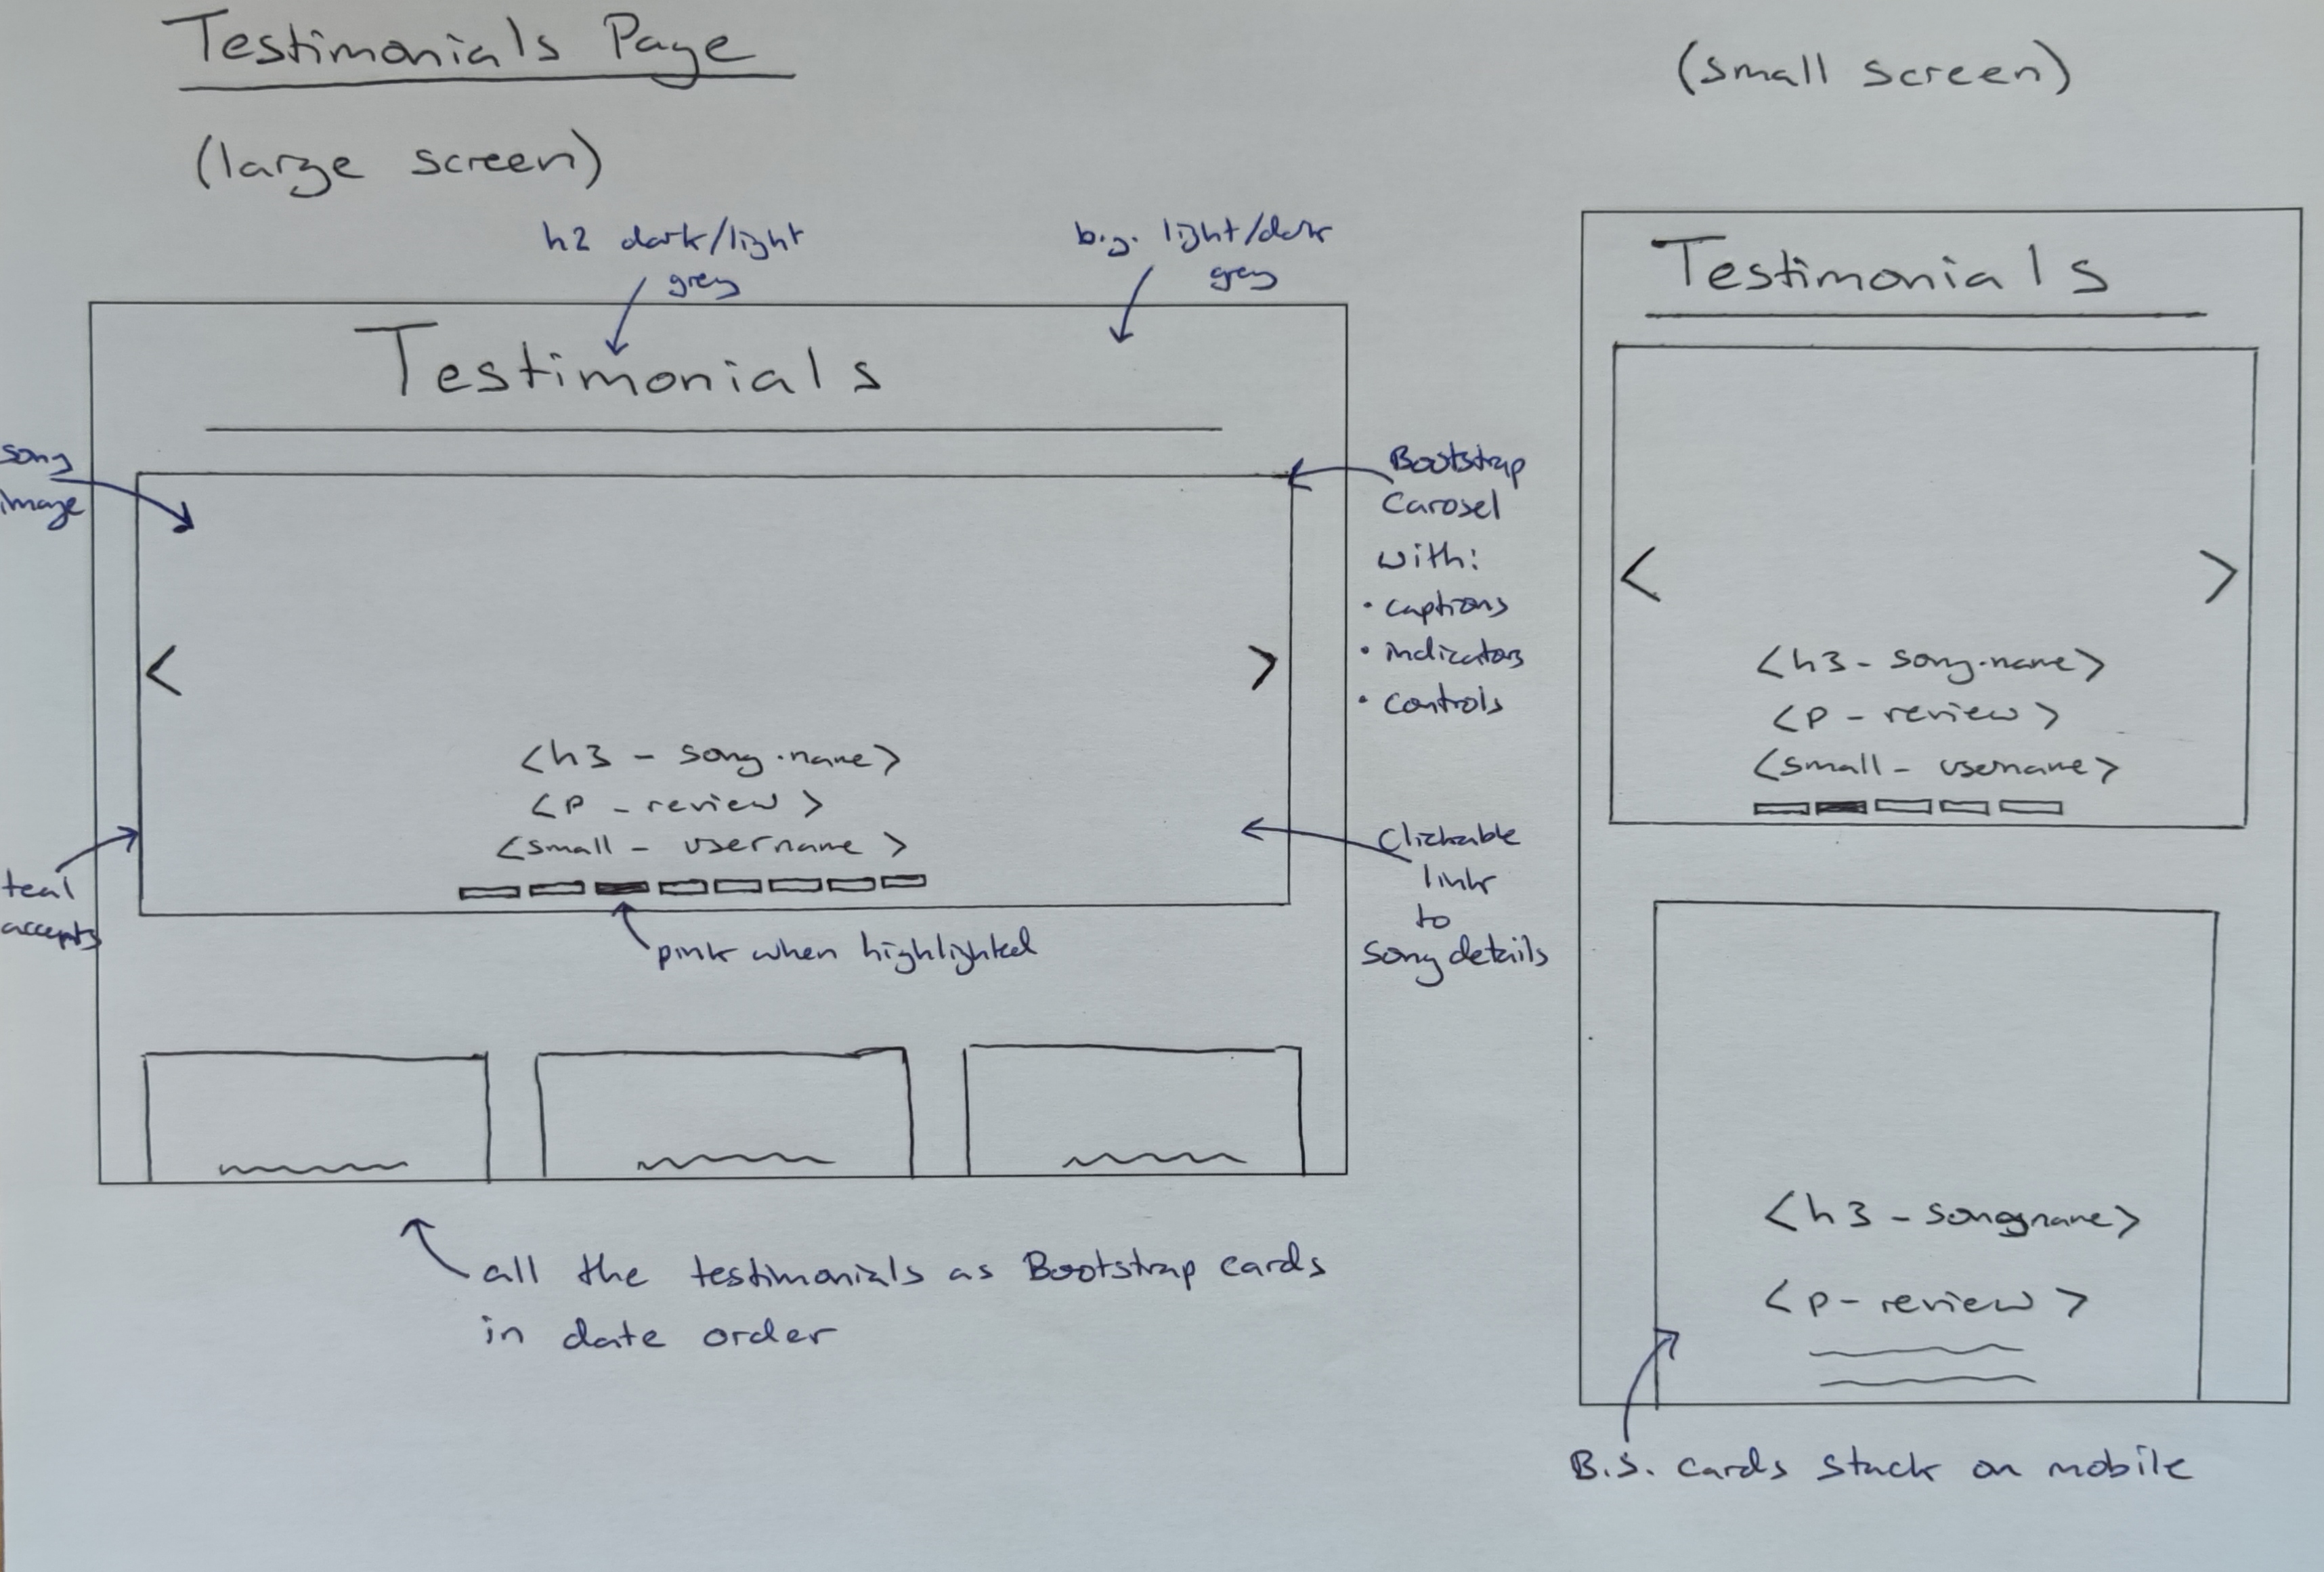 Testimonials Page
(large screen)
h2 dark/light
grey
b.g. light/dark
grey
Testimonials
song
image
Bootstrap
Carosel
with:
• captions
• indicators
• controls
<
>
<h3 - song.name>
<p - review>
<small - username>
teal
accepts
pink when highlighted
Clickable
link
to
song details
all the testimonials as Bootstrap cards
in date order
(small screen)
Testimonials
<
>
<h3 - song.name>
<p - review>
<small - username>
<h3 - songname>
<p - review>
B.S. cards stack on mobile